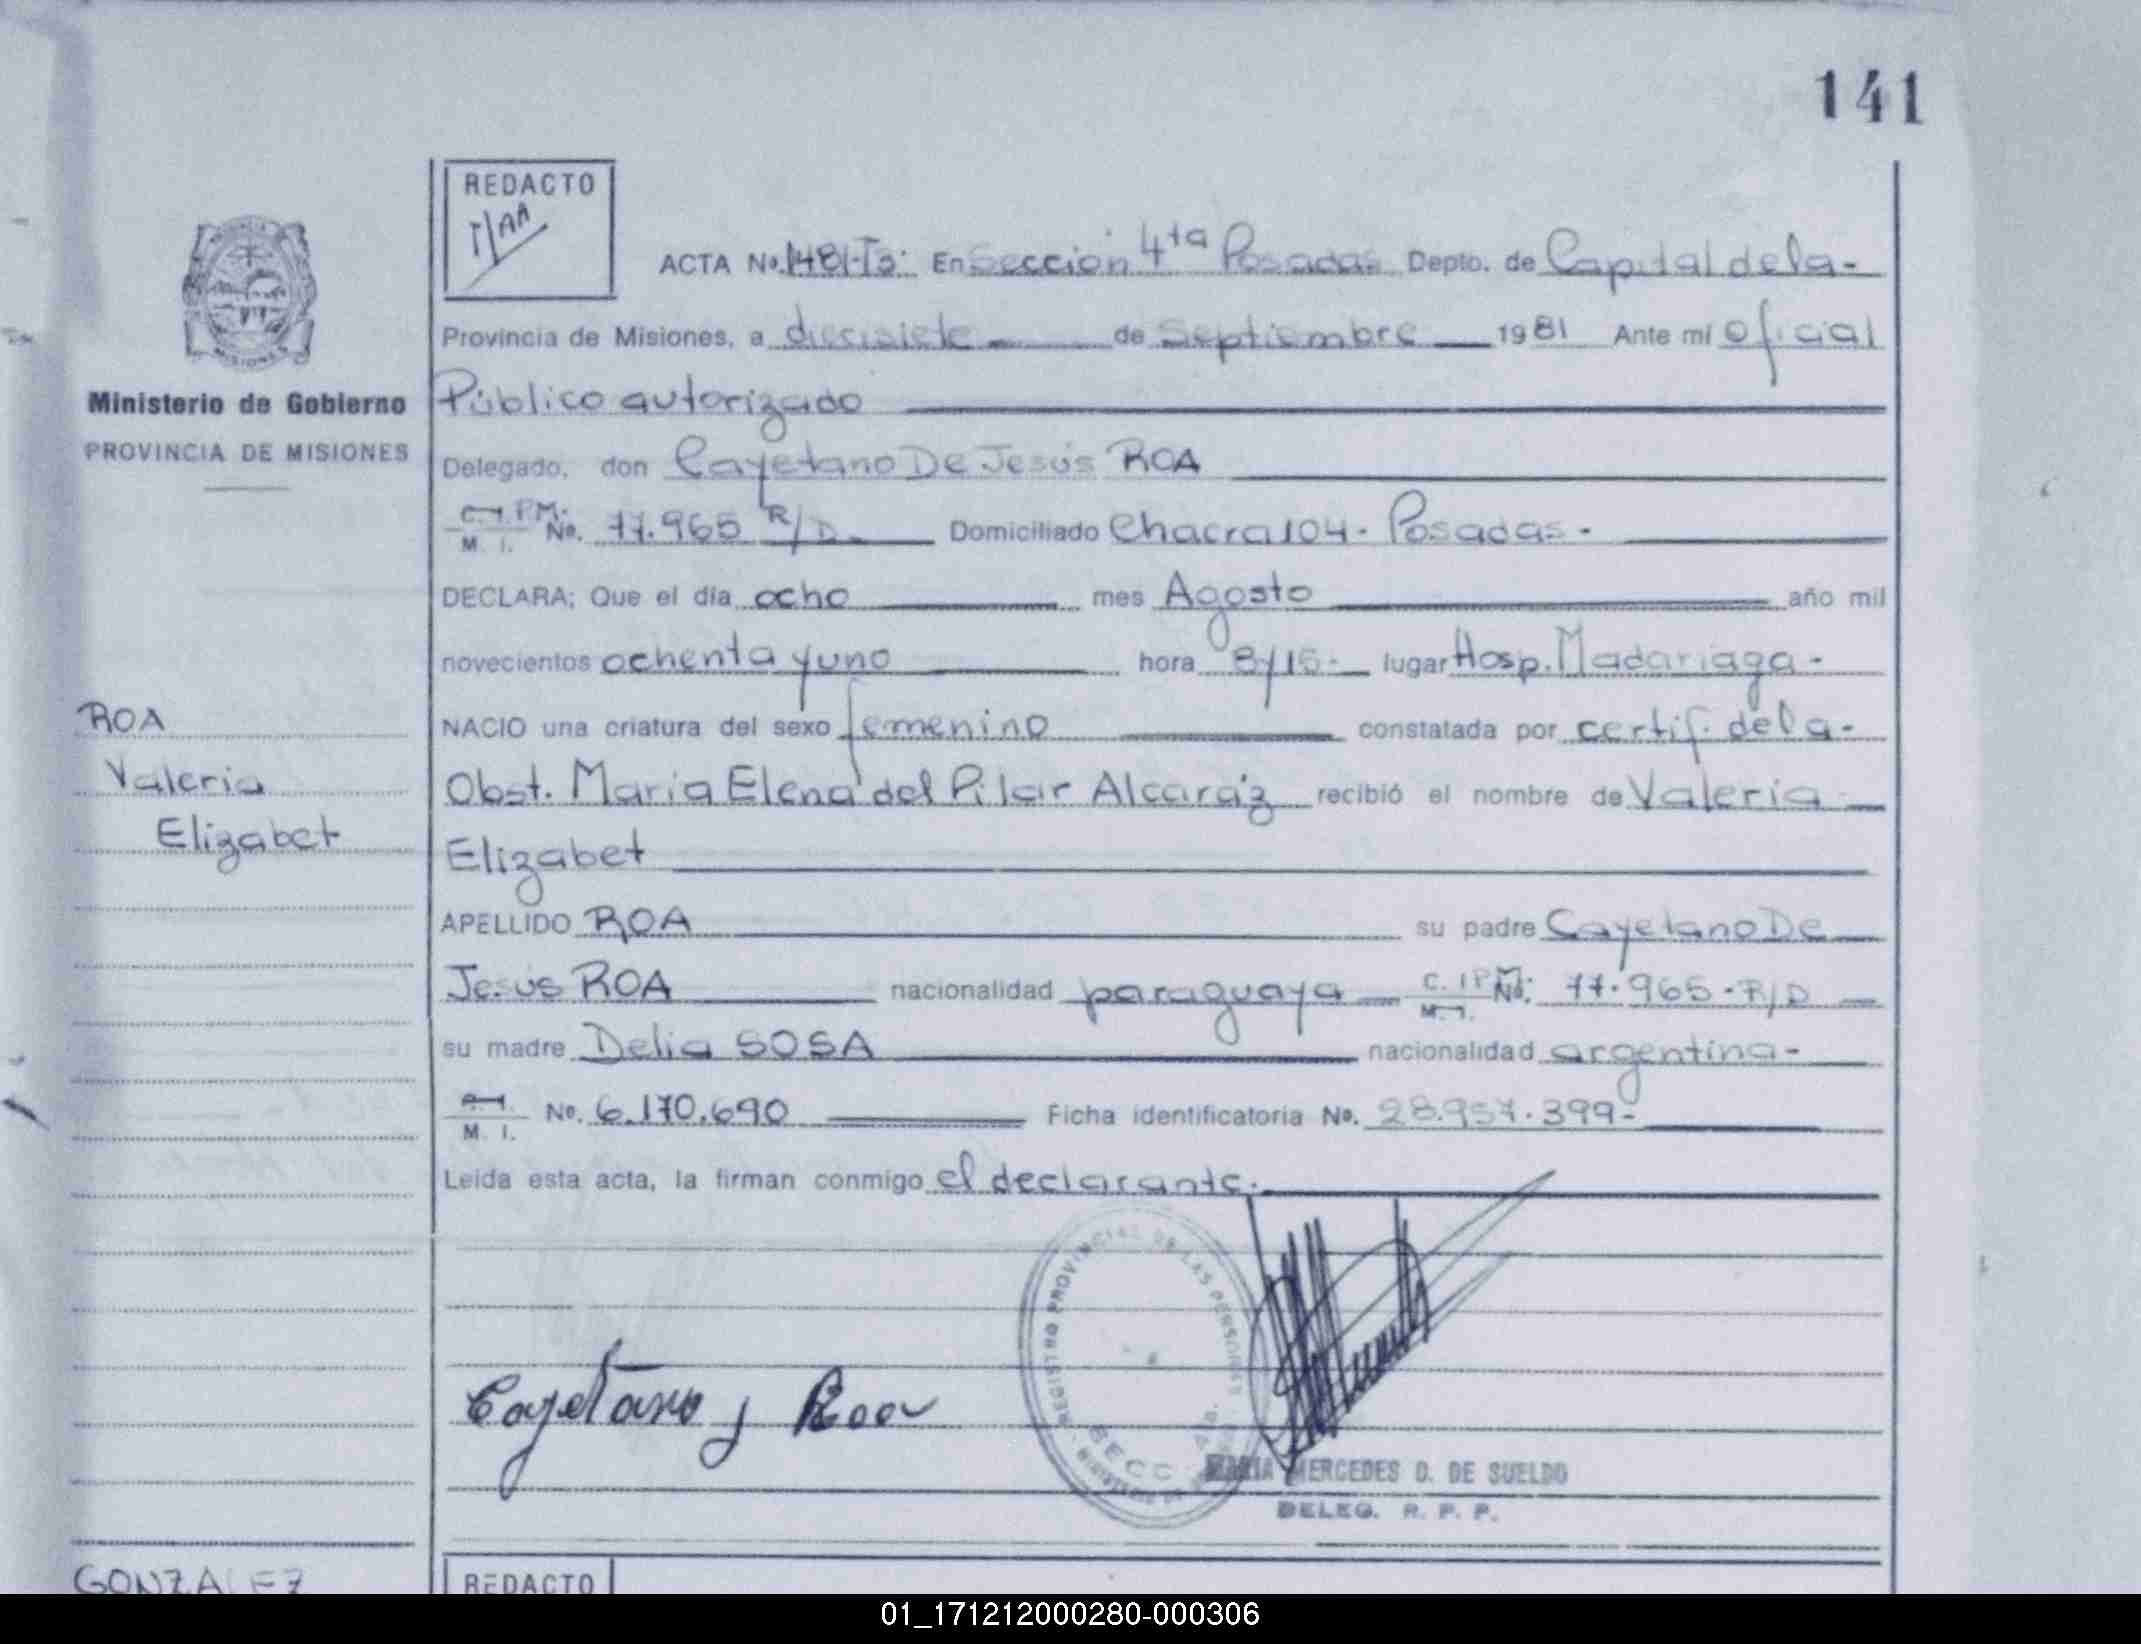 141
REDACTO
ACTA No. 1481-To: En Sección 4ta Posadas Depto. de Capital de la-
Provincia de Misiones, a diecisiete de Septiembre 1981 Ante mí Oficial
Ministerio de Gobierno
Público autorizado
PROVINCIA DE MISIONES
Delegado, don Cayetano De Jesús ROA
C.I.P.M. M. I. No. 77.965 R/D Domiciliado Chacra 104 - Posadas -
DECLARA; Que el día ocho mes Agosto año mil
novecientos ochenta y uno hora 8/15- lugar Hosp. Madariaga -
ROA
NACIO una criatura del sexo femenino constatada por certif. de la-
Valeria
Obst. María Elena del Pilar Alcaráz recibió el nombre de Valeria
Elizabet
Elizabet
APELLIDO ROA su padre Cayetano De
Jesús ROA nacionalidad paraguaya C. I P M. M. I. No. 77.965-R/D
su madre Delia SOSA nacionalidad argentina-
C. I. M. I. No. 6.170.690 Ficha identificatoria No. 28.957.399-
Leída esta acta, la firman conmigo el declarante.
REGISTRO PROVINCIAL DE LAS PERSONAS
SECC. 4ta.
Cayetano J Roa
MARIA MERCEDES D. DE SUELDO
DELEG. R. P. P.
GONZALEZ
REDACTO
01_171212000280-000306